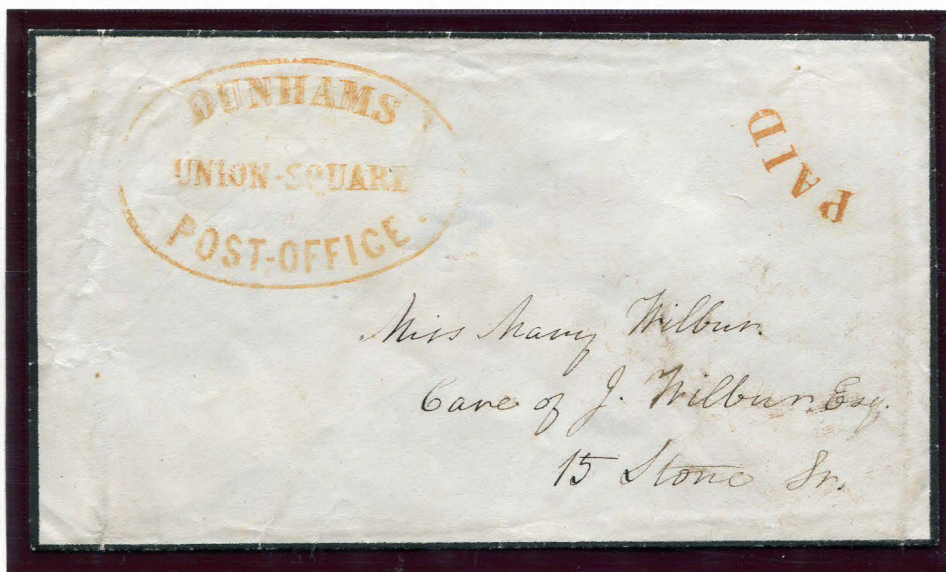 DUNHAMS
UNION-SQUARE
POST-OFFICE.
PAID
Miss Mary Wilbur.
Care of J. Wilbur, Esq.
15 Stone Sr.